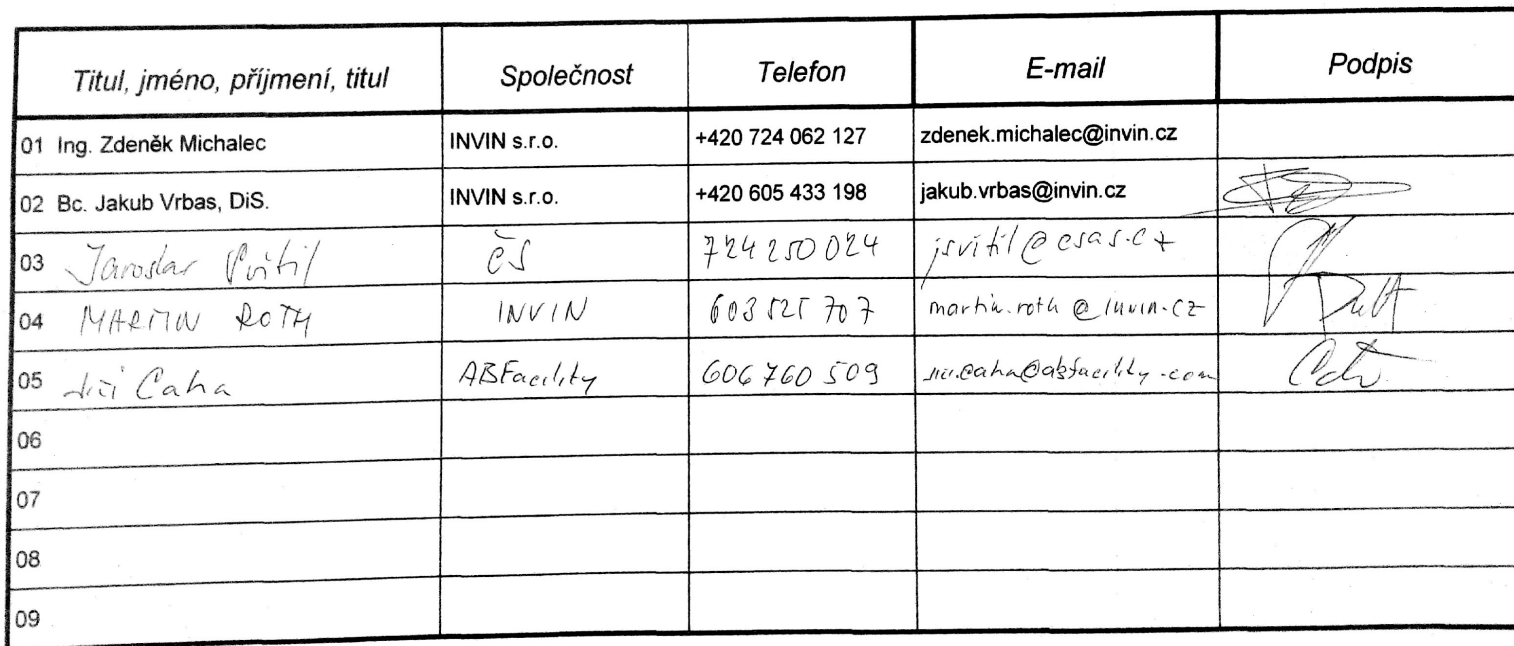 Titul, jméno, příjmení, titul Společnost Telefon E-mail Podpis
01 Ing. Zdeněk Michalec INVIN s.r.o. +420 724 062 127 zdenek.michalec@invin.cz
02 Bc. Jakub Vrbas, DiS. INVIN s.r.o. +420 605 433 198 jakub.vrbas@invin.cz
03 Jaroslav Svítil ČS 724 250 024 jsvitil@csas.cz
04 MARTIN ROTH INVIN 603 525 707 martin.roth@invin.cz
05 Jiří Caha ABFacility 606 760 509 jiri.caha@abfacility.com
06
07
08
09